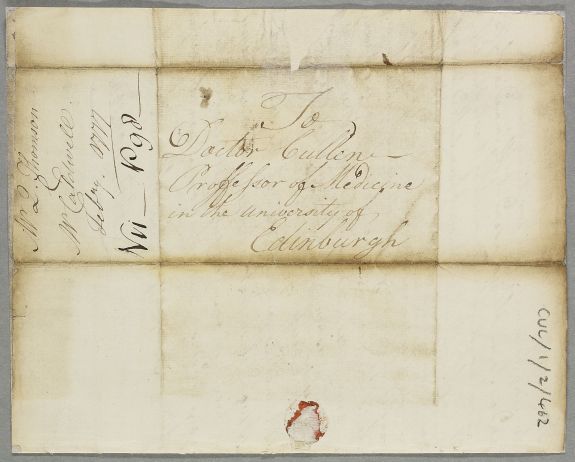 To
Doctor Cullen
Proffessor of Medicine
in the University of
Edinburgh
Mr L. Thomson
Mr Caldwell.
Feby. 1777
N98
CUL/1/2/462